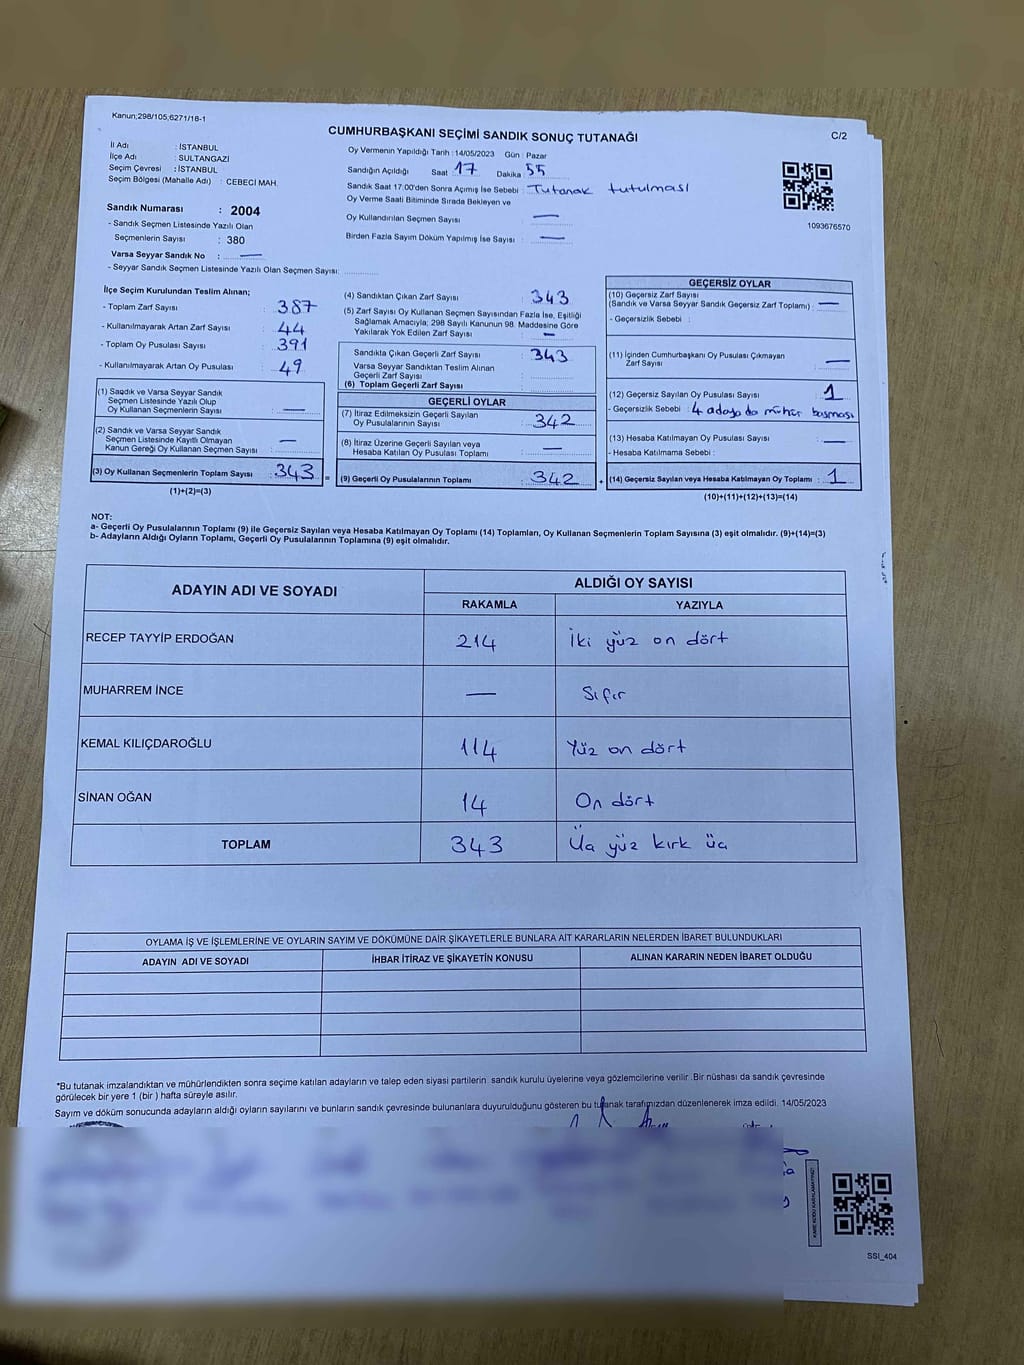 Kanun;298/105,6271/18-1
CUMHURBAŞKANI SEÇİMİ SANDIK SONUÇ TUTANAĞI
C/2
İl Adı : İSTANBUL
İlçe Adı : SULTANGAZİ
Seçim Çevresi : İSTANBUL
Seçim Bölgesi (Mahalle Adı) : CEBECİ MAH.
Sandık Numarası : 2004
- Sandık Seçmen Listesinde Yazılı Olan
Seçmenlerin Sayısı : 380
Varsa Seyyar Sandık No : —
- Seyyar Sandık Seçmen Listesinde Yazılı Olan Seçmen Sayısı:
Oy Vermenin Yapıldığı Tarih : 14/05/2023 Gün : Pazar
Sandığın Açıldığı Saat 17 Dakika 55
Sandık Saat 17:00'den Sonra Açımış İse Sebebi : Tutanak tutulması
Oy Verme Saati Bitiminde Sırada Bekleyen ve
Oy Kullandırılan Seçmen Sayısı : —
Birden Fazla Sayım Döküm Yapılmış İse Sayısı : —
1093676570
İlçe Seçim Kurulundan Teslim Alınan;
- Toplam Zarf Sayısı : 387
- Kullanılmayarak Artan Zarf Sayısı : 44
- Toplam Oy Pusulası Sayısı : 391
- Kullanılmayarak Artan Oy Pusulası : 49
(1) Sandık ve Varsa Seyyar Sandık
Seçmen Listesinde Yazılı Olup
Oy Kullanan Seçmenlerin Sayısı : —
(2) Sandık ve Varsa Seyyar Sandık
Seçmen Listesinde Kayıtlı Olmayan
Kanun Gereği Oy Kullanan Seçmen Sayısı : —
(3) Oy Kullanan Seçmenlerin Toplam Sayısı : 343
(1)+(2)=(3)
(4) Sandıktan Çıkan Zarf Sayısı : 343
(5) Zarf Sayısı Oy Kullanan Seçmen Sayısından Fazla İse, Eşitliği
Sağlamak Amacıyla; 298 Sayılı Kanunun 98. Maddesine Göre
Yakılarak Yok Edilen Zarf Sayısı : —
Sandıkla Çıkan Geçerli Zarf Sayısı : 343
Varsa Seyyar Sandıktan Teslim Alınan
Geçerli Zarf Sayısı :
(6) Toplam Geçerli Zarf Sayısı :
GEÇERLİ OYLAR
(7) İtiraz Edilmeksizin Geçerli Sayılan
Oy Pusulalarının Sayısı : 342
(8) İtiraz Üzerine Geçerli Sayılan veya
Hesaba Katılan Oy Pusulası Toplamı : —
= (9) Geçerli Oy Pusulalarının Toplamı : 342
GEÇERSİZ OYLAR
(10) Geçersiz Zarf Sayısı
(Sandık ve Varsa Seyyar Sandık Geçersiz Zarf Toplamı) : —
- Geçersizlik Sebebi :
(11) İçinden Cumhurbaşkanı Oy Pusulası Çıkmayan
Zarf Sayısı : —
(12) Geçersiz Sayılan Oy Pusulası Sayısı : 1
- Geçersizlik Sebebi : 4 adaya da mühür basması
(13) Hesaba Katılmayan Oy Pusulası Sayısı : —
- Hesaba Katılmama Sebebi :
+ (14) Geçersiz Sayılan veya Hesaba Katılmayan Oy Toplamı : 1
(10)+(11)+(12)+(13)=(14)
NOT:
a- Geçerli Oy Pusulalarının Toplamı (9) ile Geçersiz Sayılan veya Hesaba Katılmayan Oy Toplamı (14) Toplamları, Oy Kullanan Seçmenlerin Toplam Sayısına (3) eşit olmalıdır. (9)+(14)=(3)
b- Adayların Aldığı Oyların Toplamı, Geçerli Oy Pusulalarının Toplamına (9) eşit olmalıdır.
ADAYIN ADI VE SOYADI ALDIĞI OY SAYISI
RAKAMLA YAZIYLA
RECEP TAYYİP ERDOĞAN 214 İki yüz on dört
MUHARREM İNCE — Sıfır
KEMAL KILIÇDAROĞLU 114 Yüz on dört
SİNAN OĞAN 14 On dört
TOPLAM 343 Üç yüz kırk üç
OYLAMA İŞ VE İŞLEMLERİNE VE OYLARIN SAYIM VE DÖKÜMÜNE DAİR ŞİKAYETLERLE BUNLARA AİT KARARLARIN NELERDEN İBARET BULUNDUKLARI
ADAYIN ADI VE SOYADI İHBAR İTİRAZ VE ŞİKAYETİN KONUSU ALINAN KARARIN NEDEN İBARET OLDUĞU
*Bu tutanak imzalandıktan ve mühürlendikten sonra seçime katılan adayların ve talep eden siyasi partilerin sandık kurulu üyelerine veya gözlemcilerine verilir. Bir nüshası da sandık çevresinde
görülecek bir yere 1 (bir) hafta süreyle asılır.
Sayım ve döküm sonucunda adayların aldığı oyların sayılarını ve bunların sandık çevresinde bulunanlara duyurulduğunu gösteren bu tutanak tarafımızdan düzenlenerek imza edildi. 14/05/2023
SSI_404